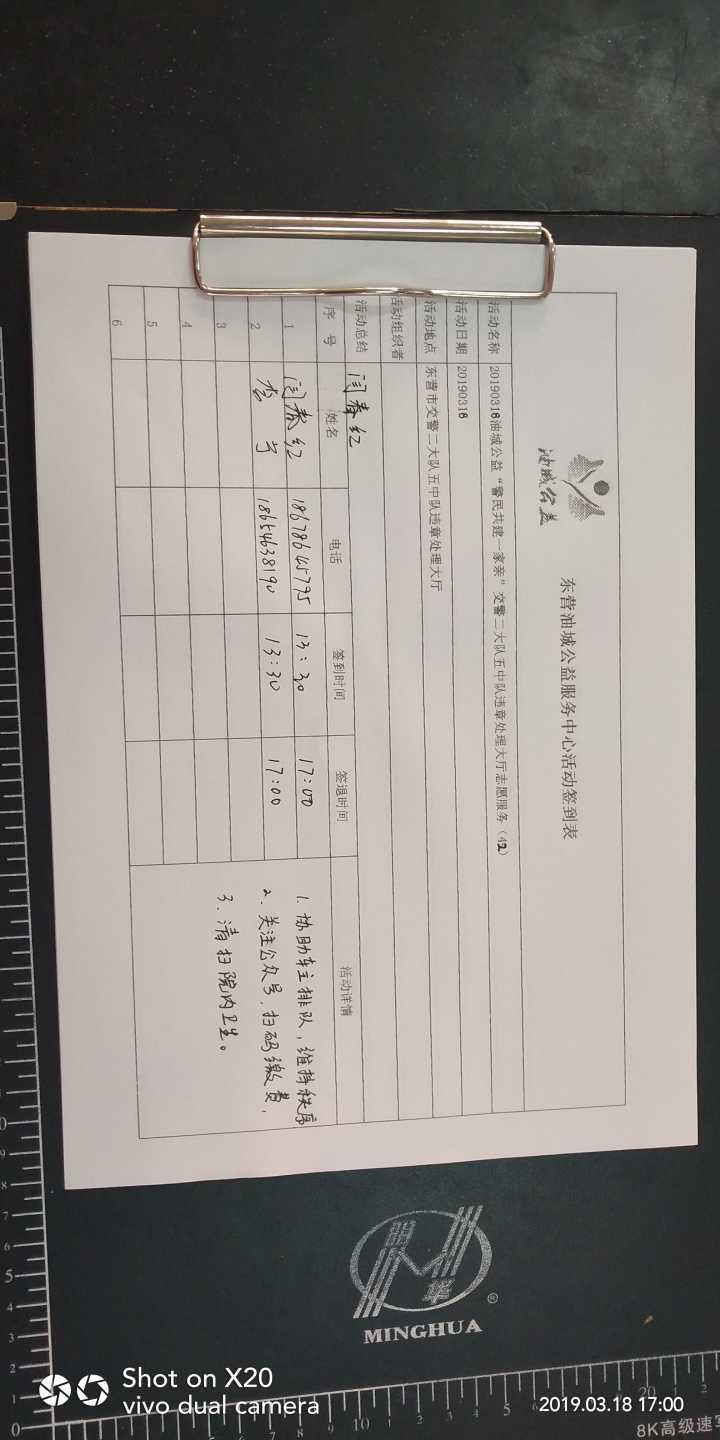 油城公益
东营油城公益服务中心活动签到表
活动名称 20190318油城公益“警民共建一家亲”交警二大队五中队违章处理大厅志愿服务（42）
活动日期 20190318
活动地点 东营市交警二大队五中队违章处理大厅
活动组织者
活动总结 闫春红
序号 姓名 电话 签到时间 签退时间 活动详情
1 闫春红 18678645795 13:30 17:00 1.协助车主排队，维持秩序
2 18654638190 13:30 17:00 2.关注公众号，扫码缴费，
3 3.清扫院内卫生。
4
5
6
明华
MINGHUA
®
Shot on X20
vivo dual camera
2019.03.18 17:00
8K高级速写